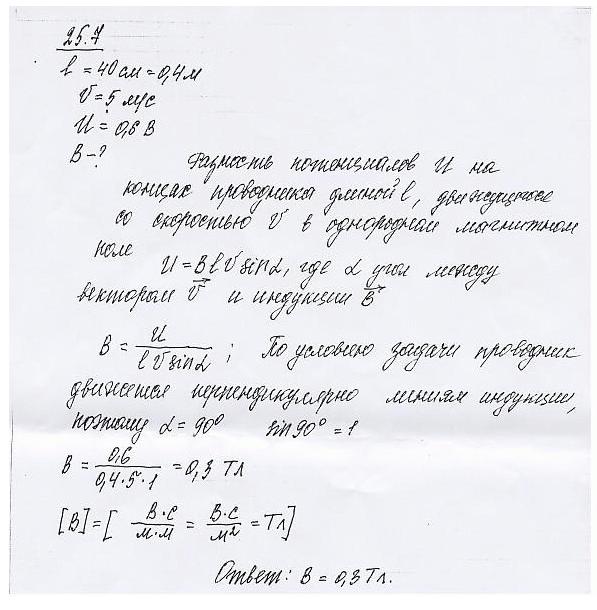 25.7
l = 40 см = 0,4 м
V = 5 м/с
U = 0,6 В
B - ?
Разность потенциалов U на
концах проводника длиной l, движущегося
со скоростью V в однородном магнитном
поле
U = B l V sin α, где α угол между
вектором V⃗ и индукции B⃗
B = U / (l V sin α) ; По условию задачи проводник
движется перпендикулярно линиям индукции,
поэтому α = 90° sin 90° = 1
B = 0,6 / (0,4·5·1) = 0,3 Тл
[B] = [ В·с / (м·м) = В·с / м² = Тл ]
Ответ: B = 0,3 Тл.